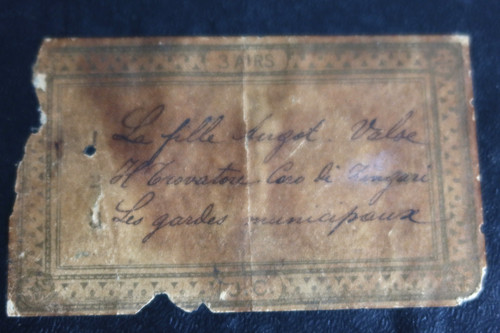 3 AIRS
La fille Angot Valse
Il Trovatore Coro di Zingari
Les gardes municipaux